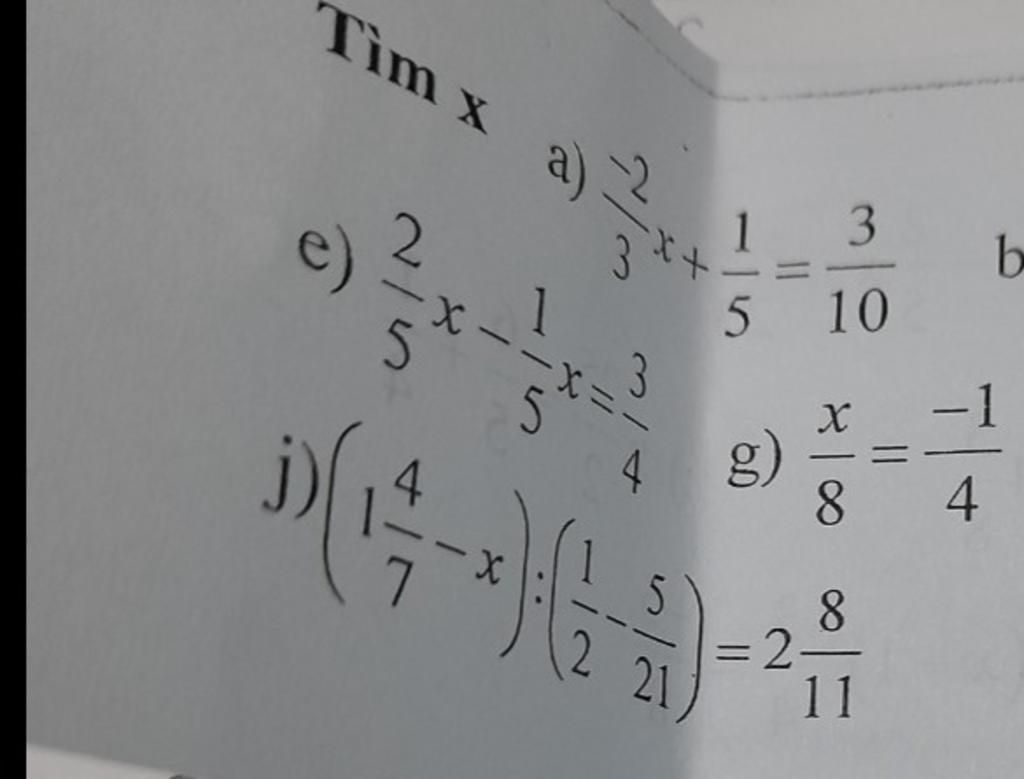 Tìm x
a) -2/3 x + 1/5 = 3/10 b
e) 2/5 x - 1/5 x = 3/4 g) x/8 = -1/4
j) (1 4/7 - x) : (1/2 - 5/21) = 2 8/11